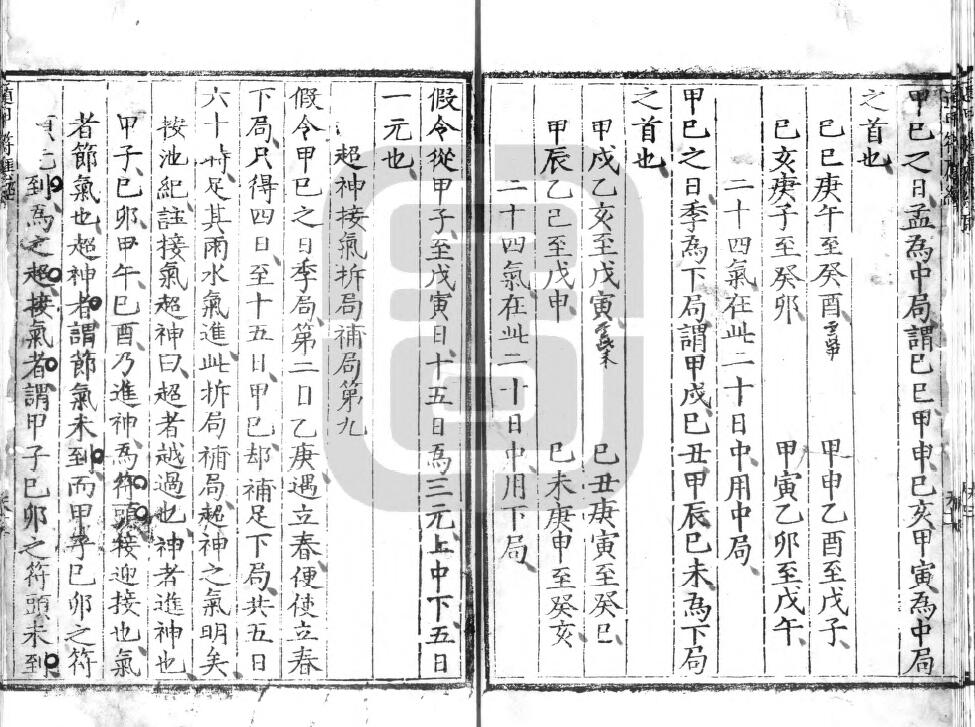 甲巳之日孟為中局謂巳巳甲申巳亥甲寅為中局
之首也
巳巳庚午至癸酉 甲申乙酉至戊子
巳亥庚子至癸卯 甲寅乙卯至戊午
二十四氣在此二十日中用中局
甲巳之日季為下局謂甲戌巳丑甲辰巳未為下局
之首也
甲戌乙亥至戊寅 巳丑庚寅至癸巳
甲辰乙巳至戊申 巳未庚申至癸亥
二十四氣在此二十日中用下局
假令從甲子至戊寅日十五日為三元上中下五日
一元也
超神接氣拆局補局第九
假令甲巳之日季局第二日乙庚遇立春便使立春
下局只得四日至十五日甲巳却補足下局共五日
六十時足其雨水氣進此拆局補局超神之氣明矣
按池紀註接氣超神曰超者越過也神者進神也
甲子巳卯甲午巳酉乃進神為符頭接迎接也氣
者節氣也超神者謂節氣未到而甲子巳卯之符
頭先到為之超接氣者謂甲子巳卯之符頭未到